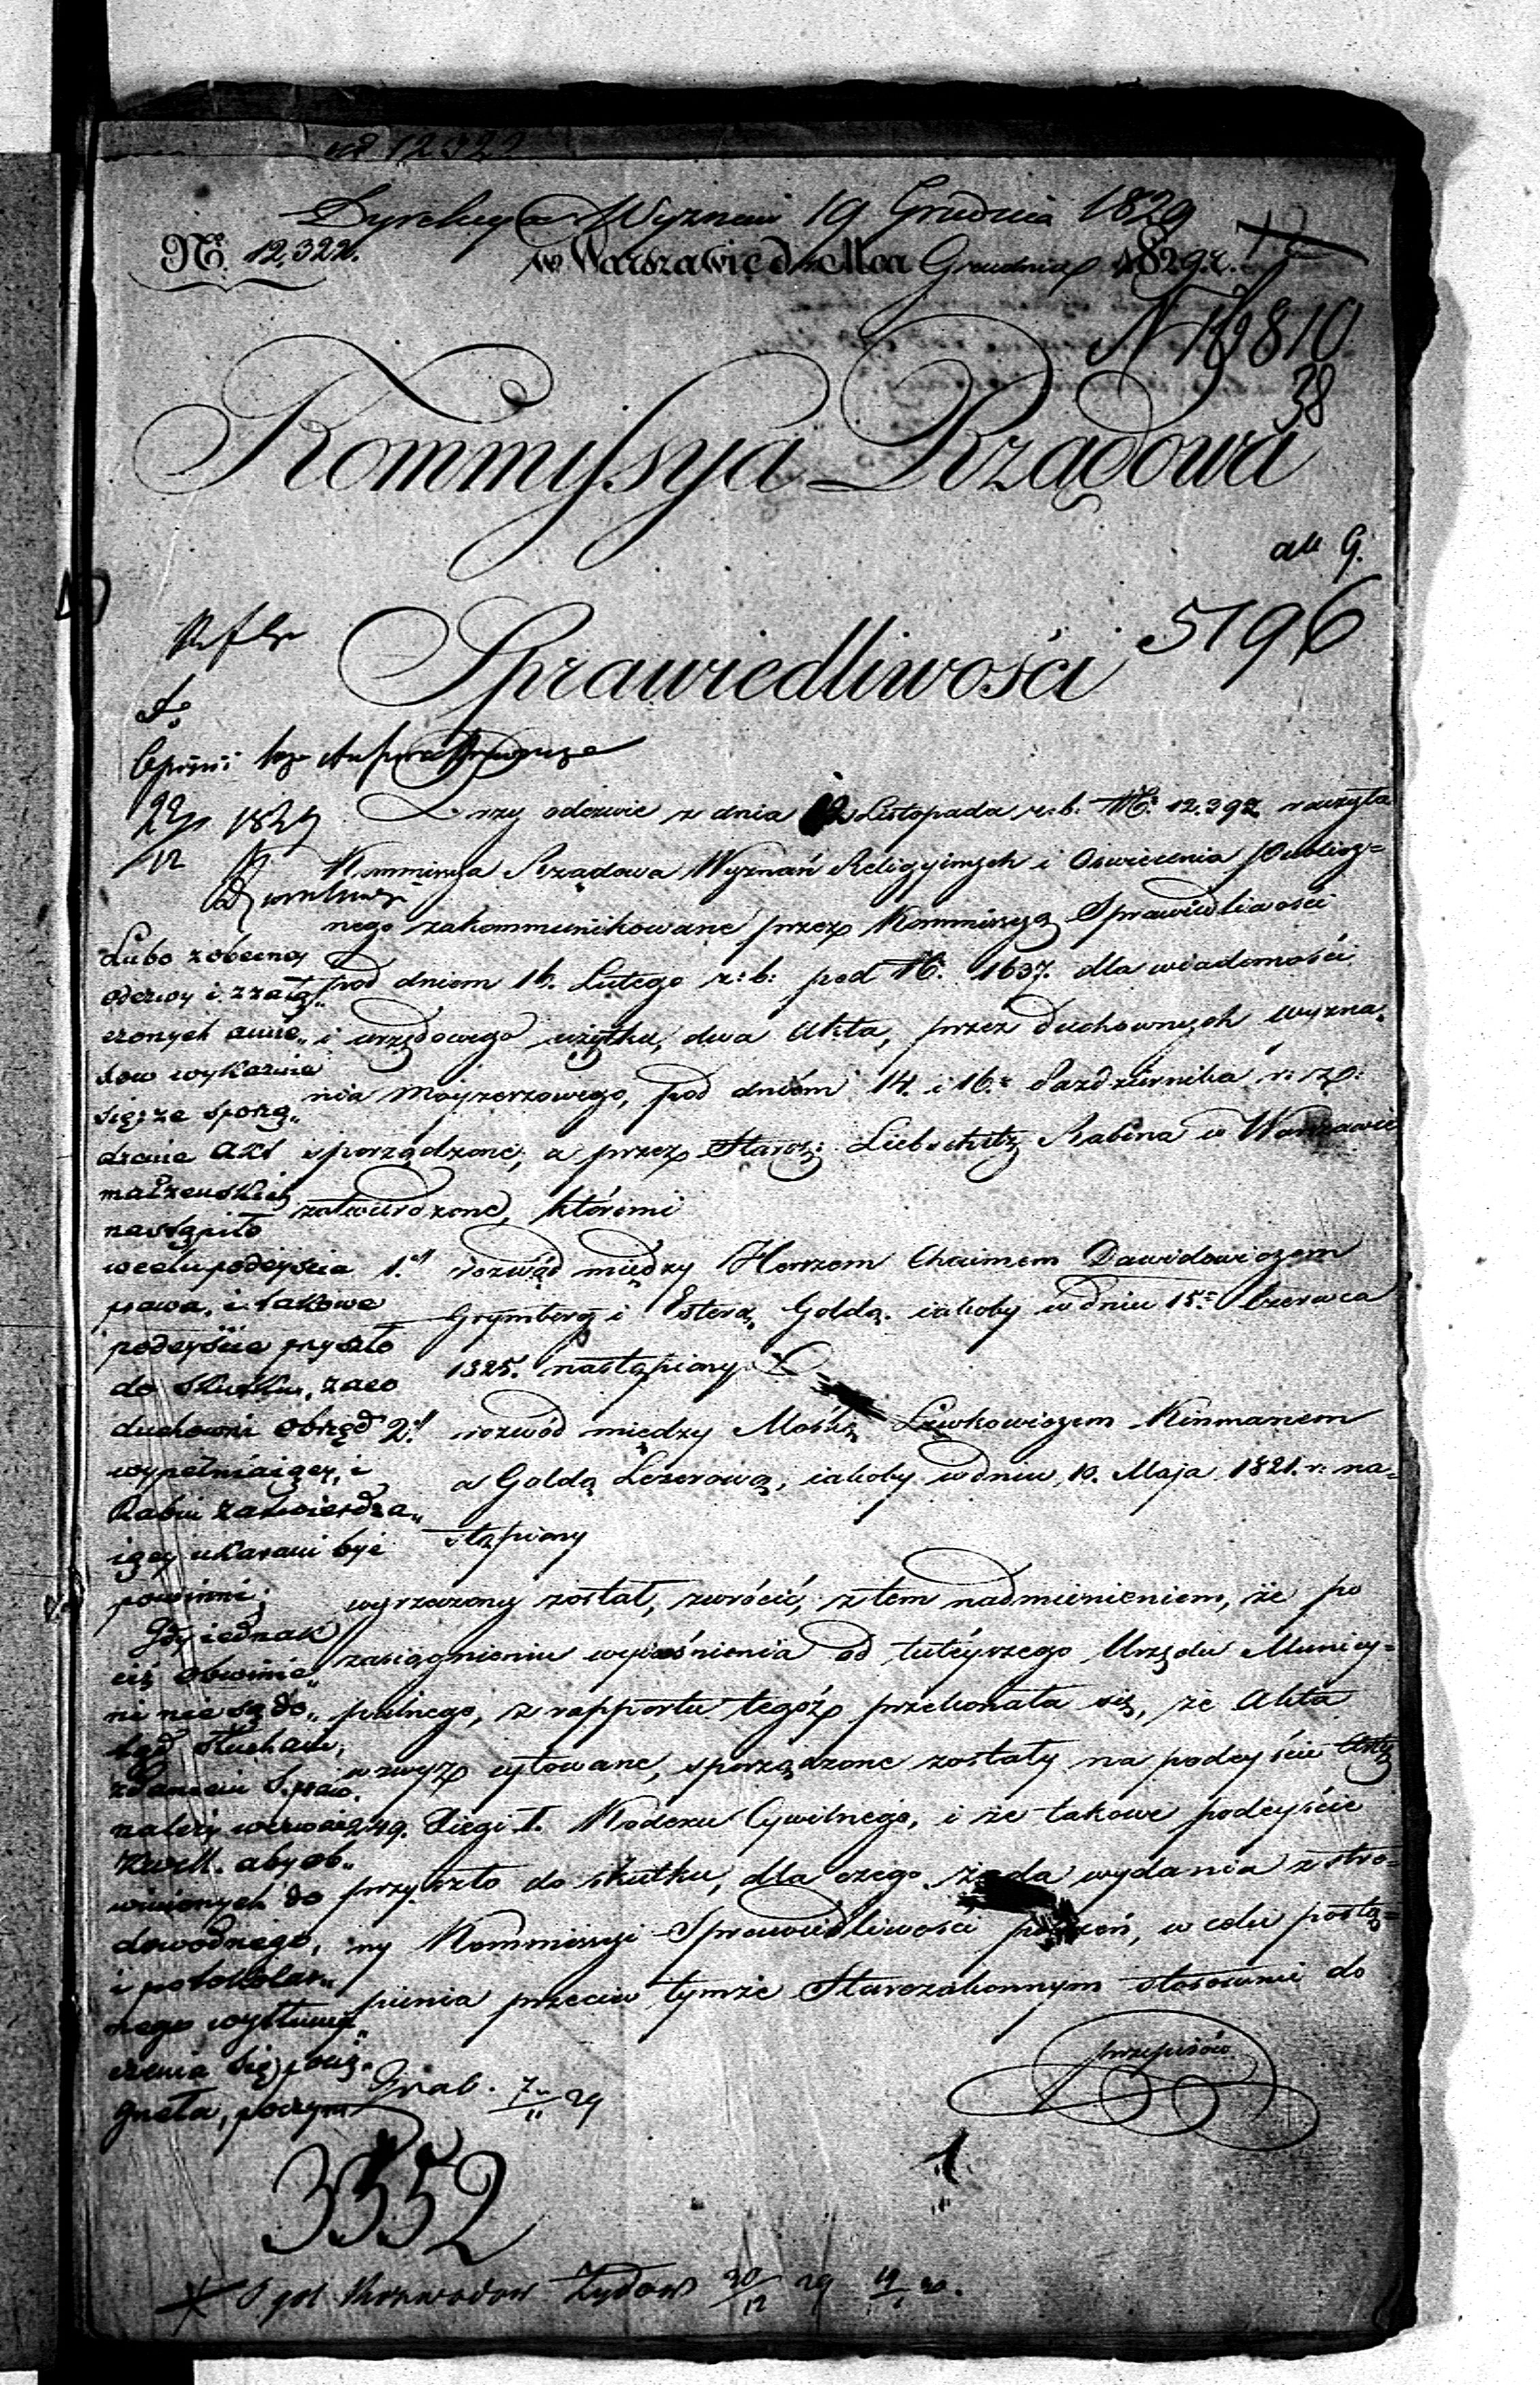 ad 12322
Dyrekcya Wyznań 19 Grudnia 1829
Nº 12,322.
w Warszawie dnia Mca Grudnia 1829. r.
N 19810
38
Kommissya Rządowa
ad 9.
5196
Sprawiedliwości
22/12 1829
Przy odezwie z dnia 12 Listopada r: b: Nº 12.392 raczyła
Kommissya Rządowa Wyznań Religyinych i Oświecenia Publicz=
nego zakommunikowane przez Kommissyą Sprawiedliwości
pod dniem 16. Lutego r: b: pod Nº 1637. dla wiadomości
i urzędowego użytku, dwa Akta, przez duchownych wyzna„
nia Moyżeszowego, pod dniem 14. i 16. Października r:
sporządzone, a przez Staroz: Liebschütz Rabina w Warszawie
zatwierdzone, któremi
1. rozwód między Herszem Chaimem Dawidowiczem
Grynberg i Esterą Goldą iakoby w dniu 15. Czerwca
1825. nastąpiony
2. rozwód między Mośką Lewkowiczem Kinmanem
a Goldą Lezerową, iakoby w dniu 10. Maja 1821. r: na=
stąpiony
wyrzeczony został, zwrócić, z tem nadmienieniem, że po
zasiągnieniu wyiaśnienia od tuteyszego Urzędu Municy=
palnego, z rapportu tegoż przekonała się, że Akta
wzwyż cytowane, sporządzone zostały na podeyście
249. Xięgi I. Kodexu Cywilnego, i że takowe podeyście
przyszło do skutku, dla czego żąda wydania z stro=
ny Kommissyi Sprawiedliwości poleceń, w celu postą=
pienia przeciw tymże Starozakonnym stosownie do
przepisów
Lubo z obecney
odezwy i z załą„
czonych annex„
sow wykazuie
się, że sporzą„
dzenie Akt
małżeńskich
nastąpiło
w celu podeyścia
prawa, i takowe
podeyście przyszło
do skutku, zaco
duchowni obrzęd
wypełniaiący, i
Rabin zatwierdza„
iący ukarani być
powinni;
Gdy iednak
ciż obwinie„
ni nie są do„
tąd słuchani,
zdaniem
należy wezwać
aby ob„
winionych do
dowodnego,
i protokolar„
nego wytłuma„
czenia się pocią„
gnęła, poczym
3352
Rozwodów Żydów 30/12 29 19/1 30.